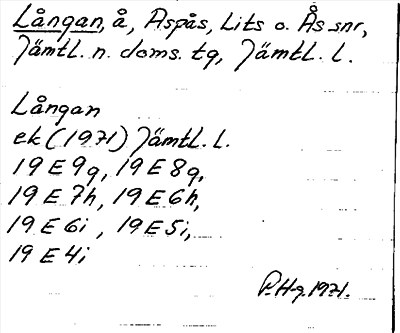 Långan, å, Aspås, Lits o. Ås snr,
Jämtl. n. doms. tg, Jämtl. l.
Långan
ek (1971) Jämtl. l.
19 E 9g, 19 E 8g,
19 E 7h, 19 E 6h,
19 E 6i , 19 E 5i,
19 E 4i
P.Hg. 1971.